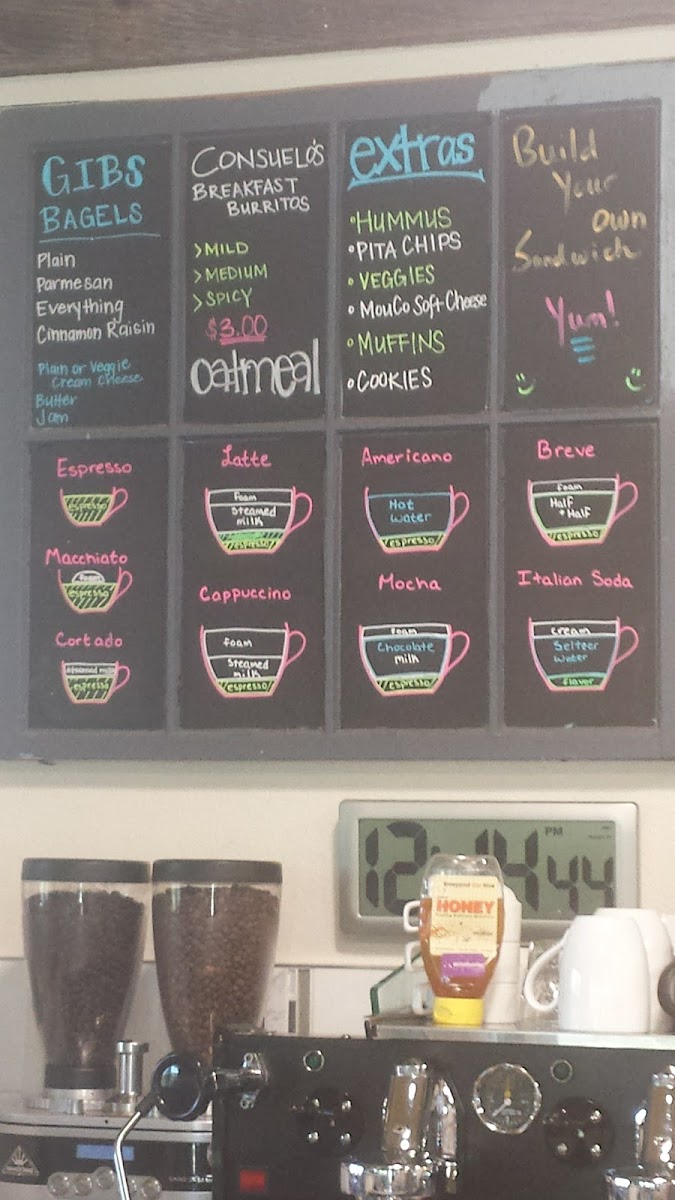 GIBS
BAGELS
Plain
Parmesan
Everything
Cinnamon Raisin
Plain or Veggie
Cream Cheese
Butter
Jam
CONSUELO'S
BREAKFAST
BURRITOS
>MILD
>MEDIUM
>SPICY
$3.00
oatmeal
extras
•HUMMUS
•PITA CHIPS
•VEGGIES
•MouCo Soft Cheese
•MUFFINS
•COOKIES
Build
Your
own
Sandwich
Yum!
Espresso
espresso
Macchiato
foam
espresso
Cortado
steamed milk
espresso
Latte
foam
Steamed
milk
espresso
Cappuccino
foam
Steamed
milk
espresso
Americano
Hot
Water
espresso
Mocha
foam
Chocolate
milk
espresso
Breve
foam
Half
+ Half
espresso
Italian Soda
cream
Seltzer
water
flavor
PM
12:14 44
HONEY